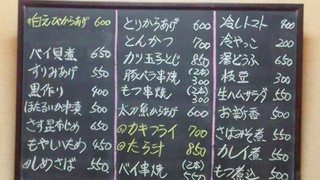 白えびからあげ 600
バイ貝煮 650
すりみあげ 550
黒作り 400
ほたるいか沖漬 500
さす昆布〆 650
もやしいため 450
◎しめさば 550
とりからあげ 600
とんかつ 700
カツ玉子とじ 850
豚バラ串焼(2本) 300
もつ串焼(2本) 300
太刀魚からあげ 600
◎カキフライ 700
◎たら汁 850
バイ串焼(2本) 550
冷しトマト 400
冷やっこ 200
湯どうふ 650
枝豆 300
生ハムサラダ 550
お新香 500
さばみそ煮 550
カレイ煮 550
もつ煮込 500